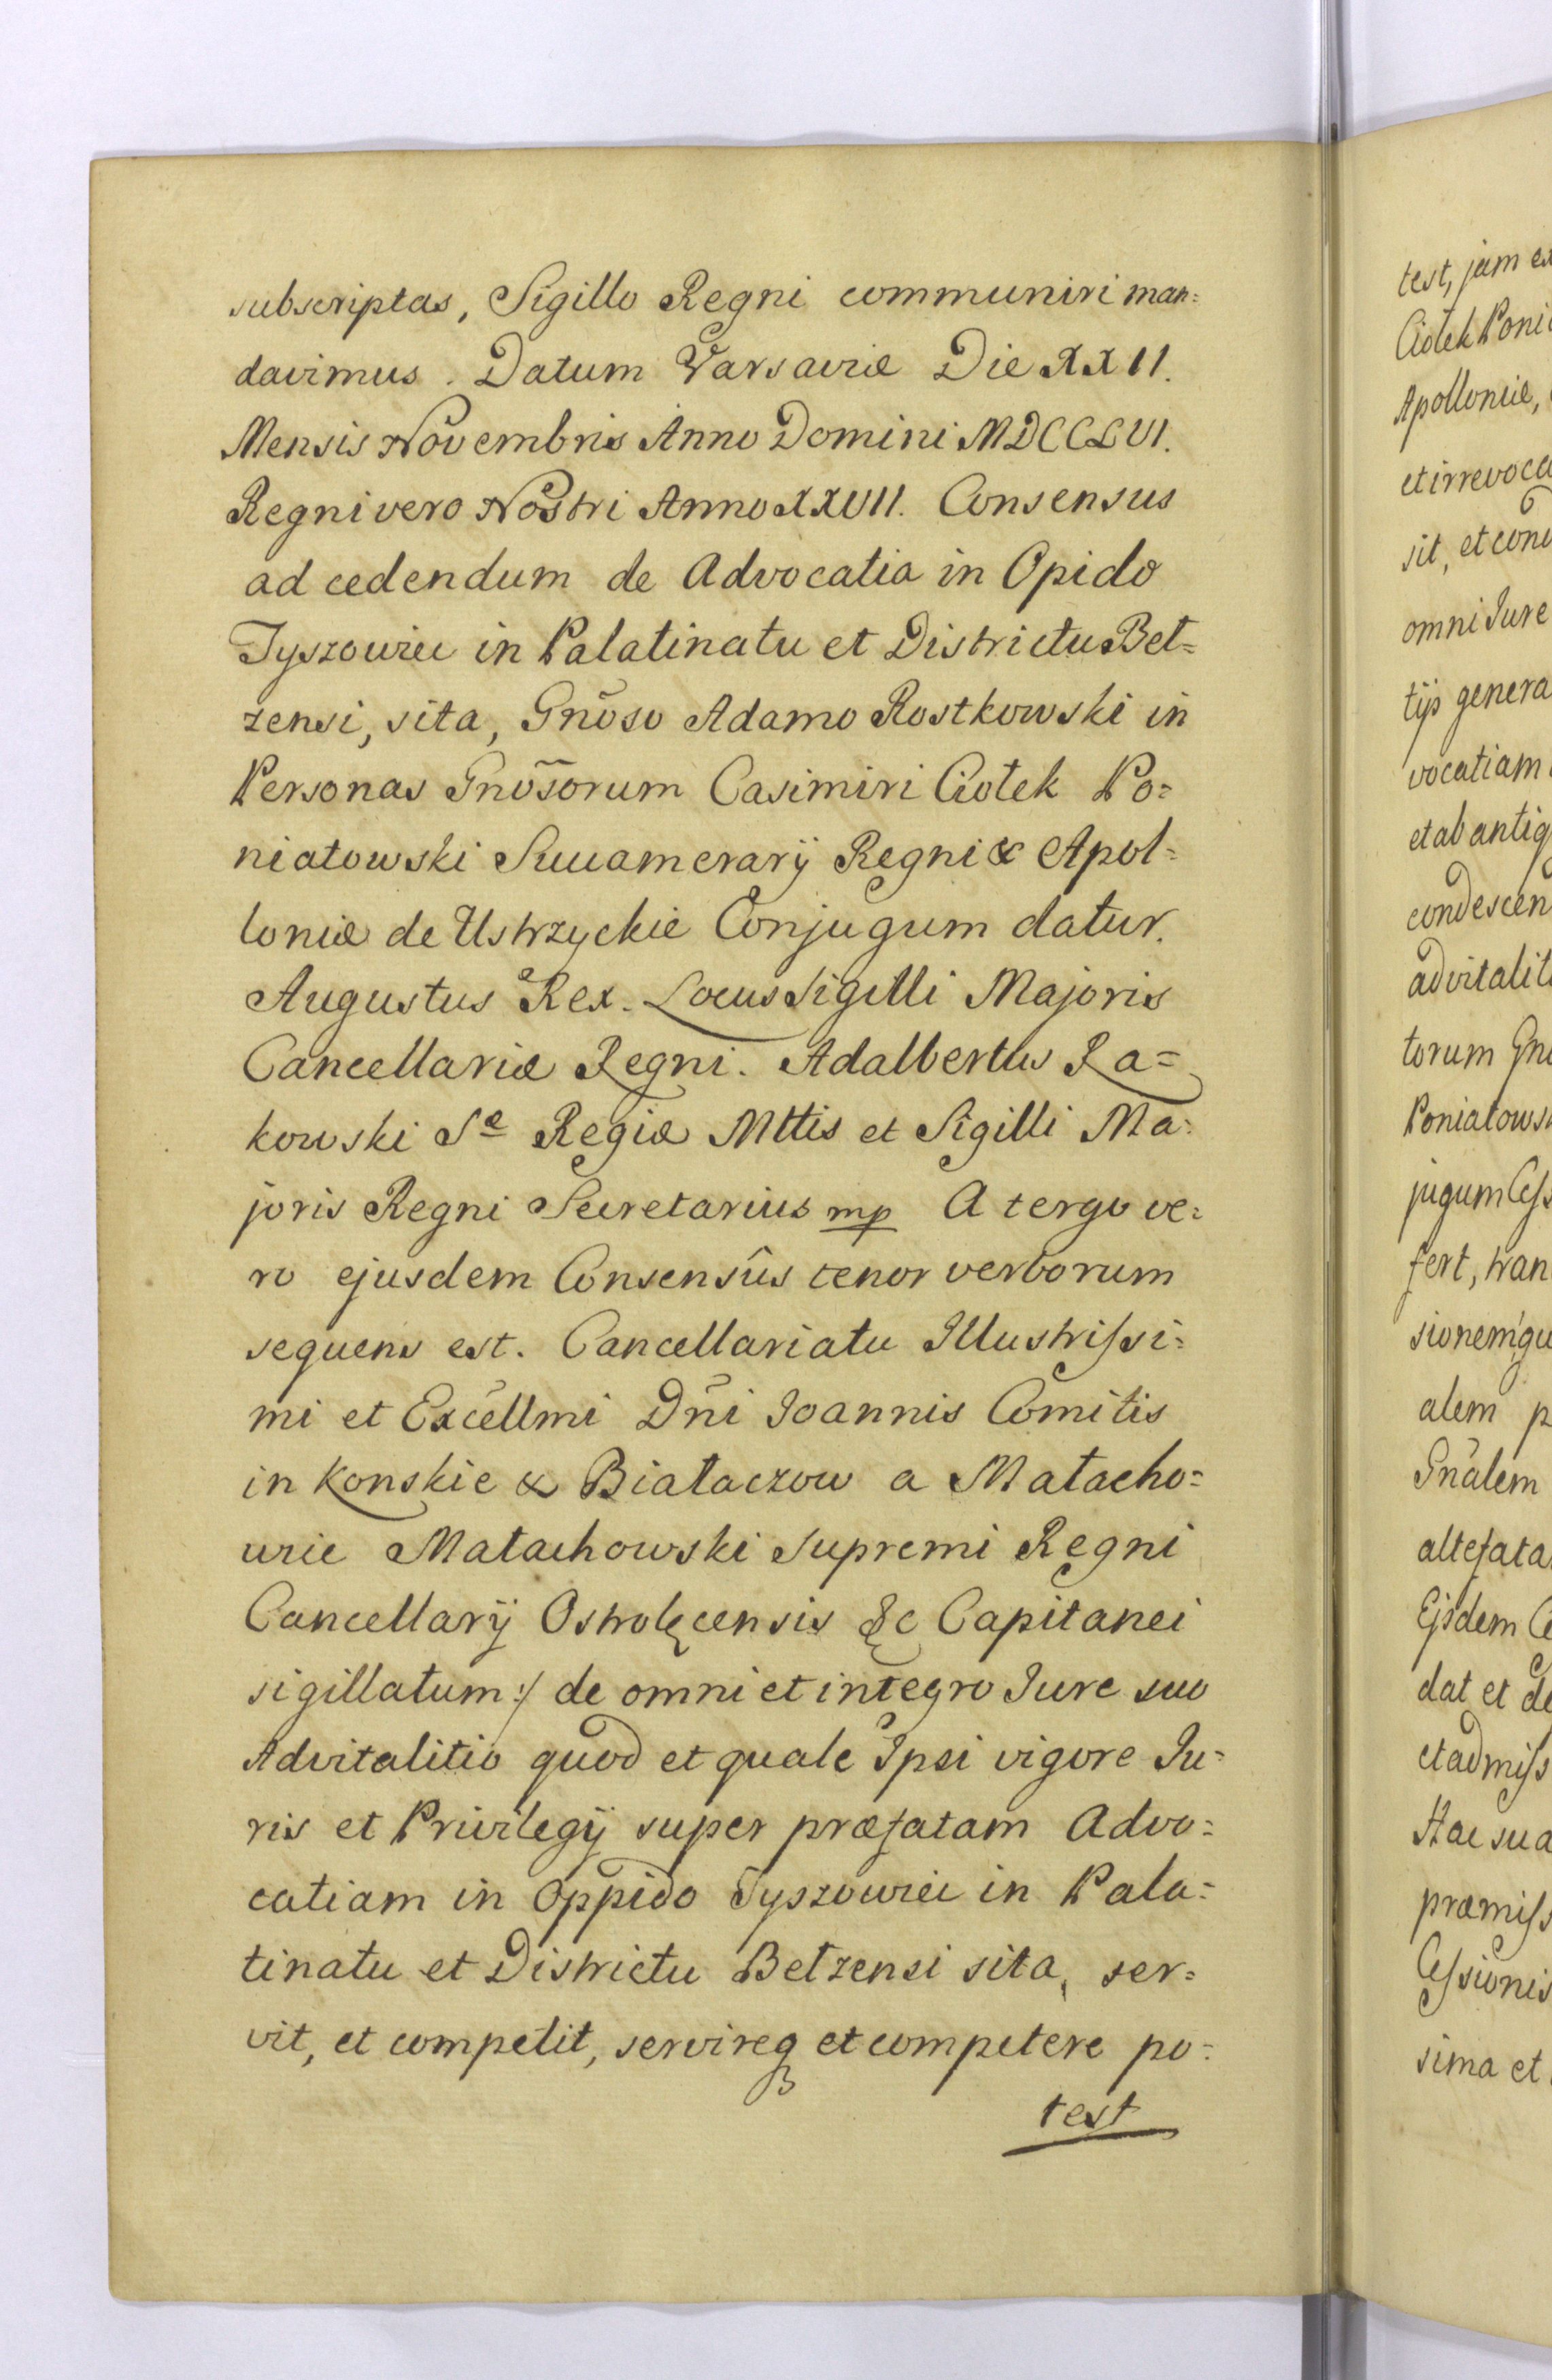 subscriptas, Sigillo Regni communiri man=
davimus. Datum Varsaviæ Die XXII.
Mensis Novembris Anno Domini MDCCLVI.
Regni vero Nostri Anno XXVII. Consensus
ad cedendum de Advocatia in Opido
Tyszowiec in Palatinatu et Districtu Bel=
zensi, sita, Gnōso Adamo Rostkowski in
Personas Gnōsorum Casimiri Ciołek Po=
niatowski Succamerarÿ Regni & Apol=
loniæ de Ustrzyckie Conjugum datur.
Augustus Rex. Locus Sigilli Majoris
Cancellariæ Regni. Adalbertus Ra=
kowski Sæ Regiæ Mttis et Sigilli Ma=
joris Regni Secretarius mp A tergo ve=
ro ejusdem Consensûs tenor verborum
sequens est. Cancellariatu Illustrissi=
mi et Excēllmi Dn̄i Joannis Comitis
in Konskie & Białaczow a Małacho=
wice Małachowski Supremi Regni
Cancellarÿ Ostrolęcensis &c Capitanei
sigillatum :/ de omni et integro Jure suo
Advitalitio quod et quale Ipsi vigore Ju=
ris et Privilegÿ super præfatam Advo=
catiam in Oppido Tyszowiec in Pala=
tinatu et Districtu Bełzensi sita, ser=
vit, et competit, servireq₃ et competere po=
test
test, jam ex
Ciołek Poni
Apolloniæ,
et irrevoca
sit, et con
omni Jure
tijs genera
vocatiam
et ab antiq
condescen
advitalit
torum Gn
Poniatows
jugum Cess
fert, tran
sionemqu
alem p
Gnālem
altefata
Ejsdem C
dat et de
et admiss
Hac sua
præmiss
Cessionis
sima et